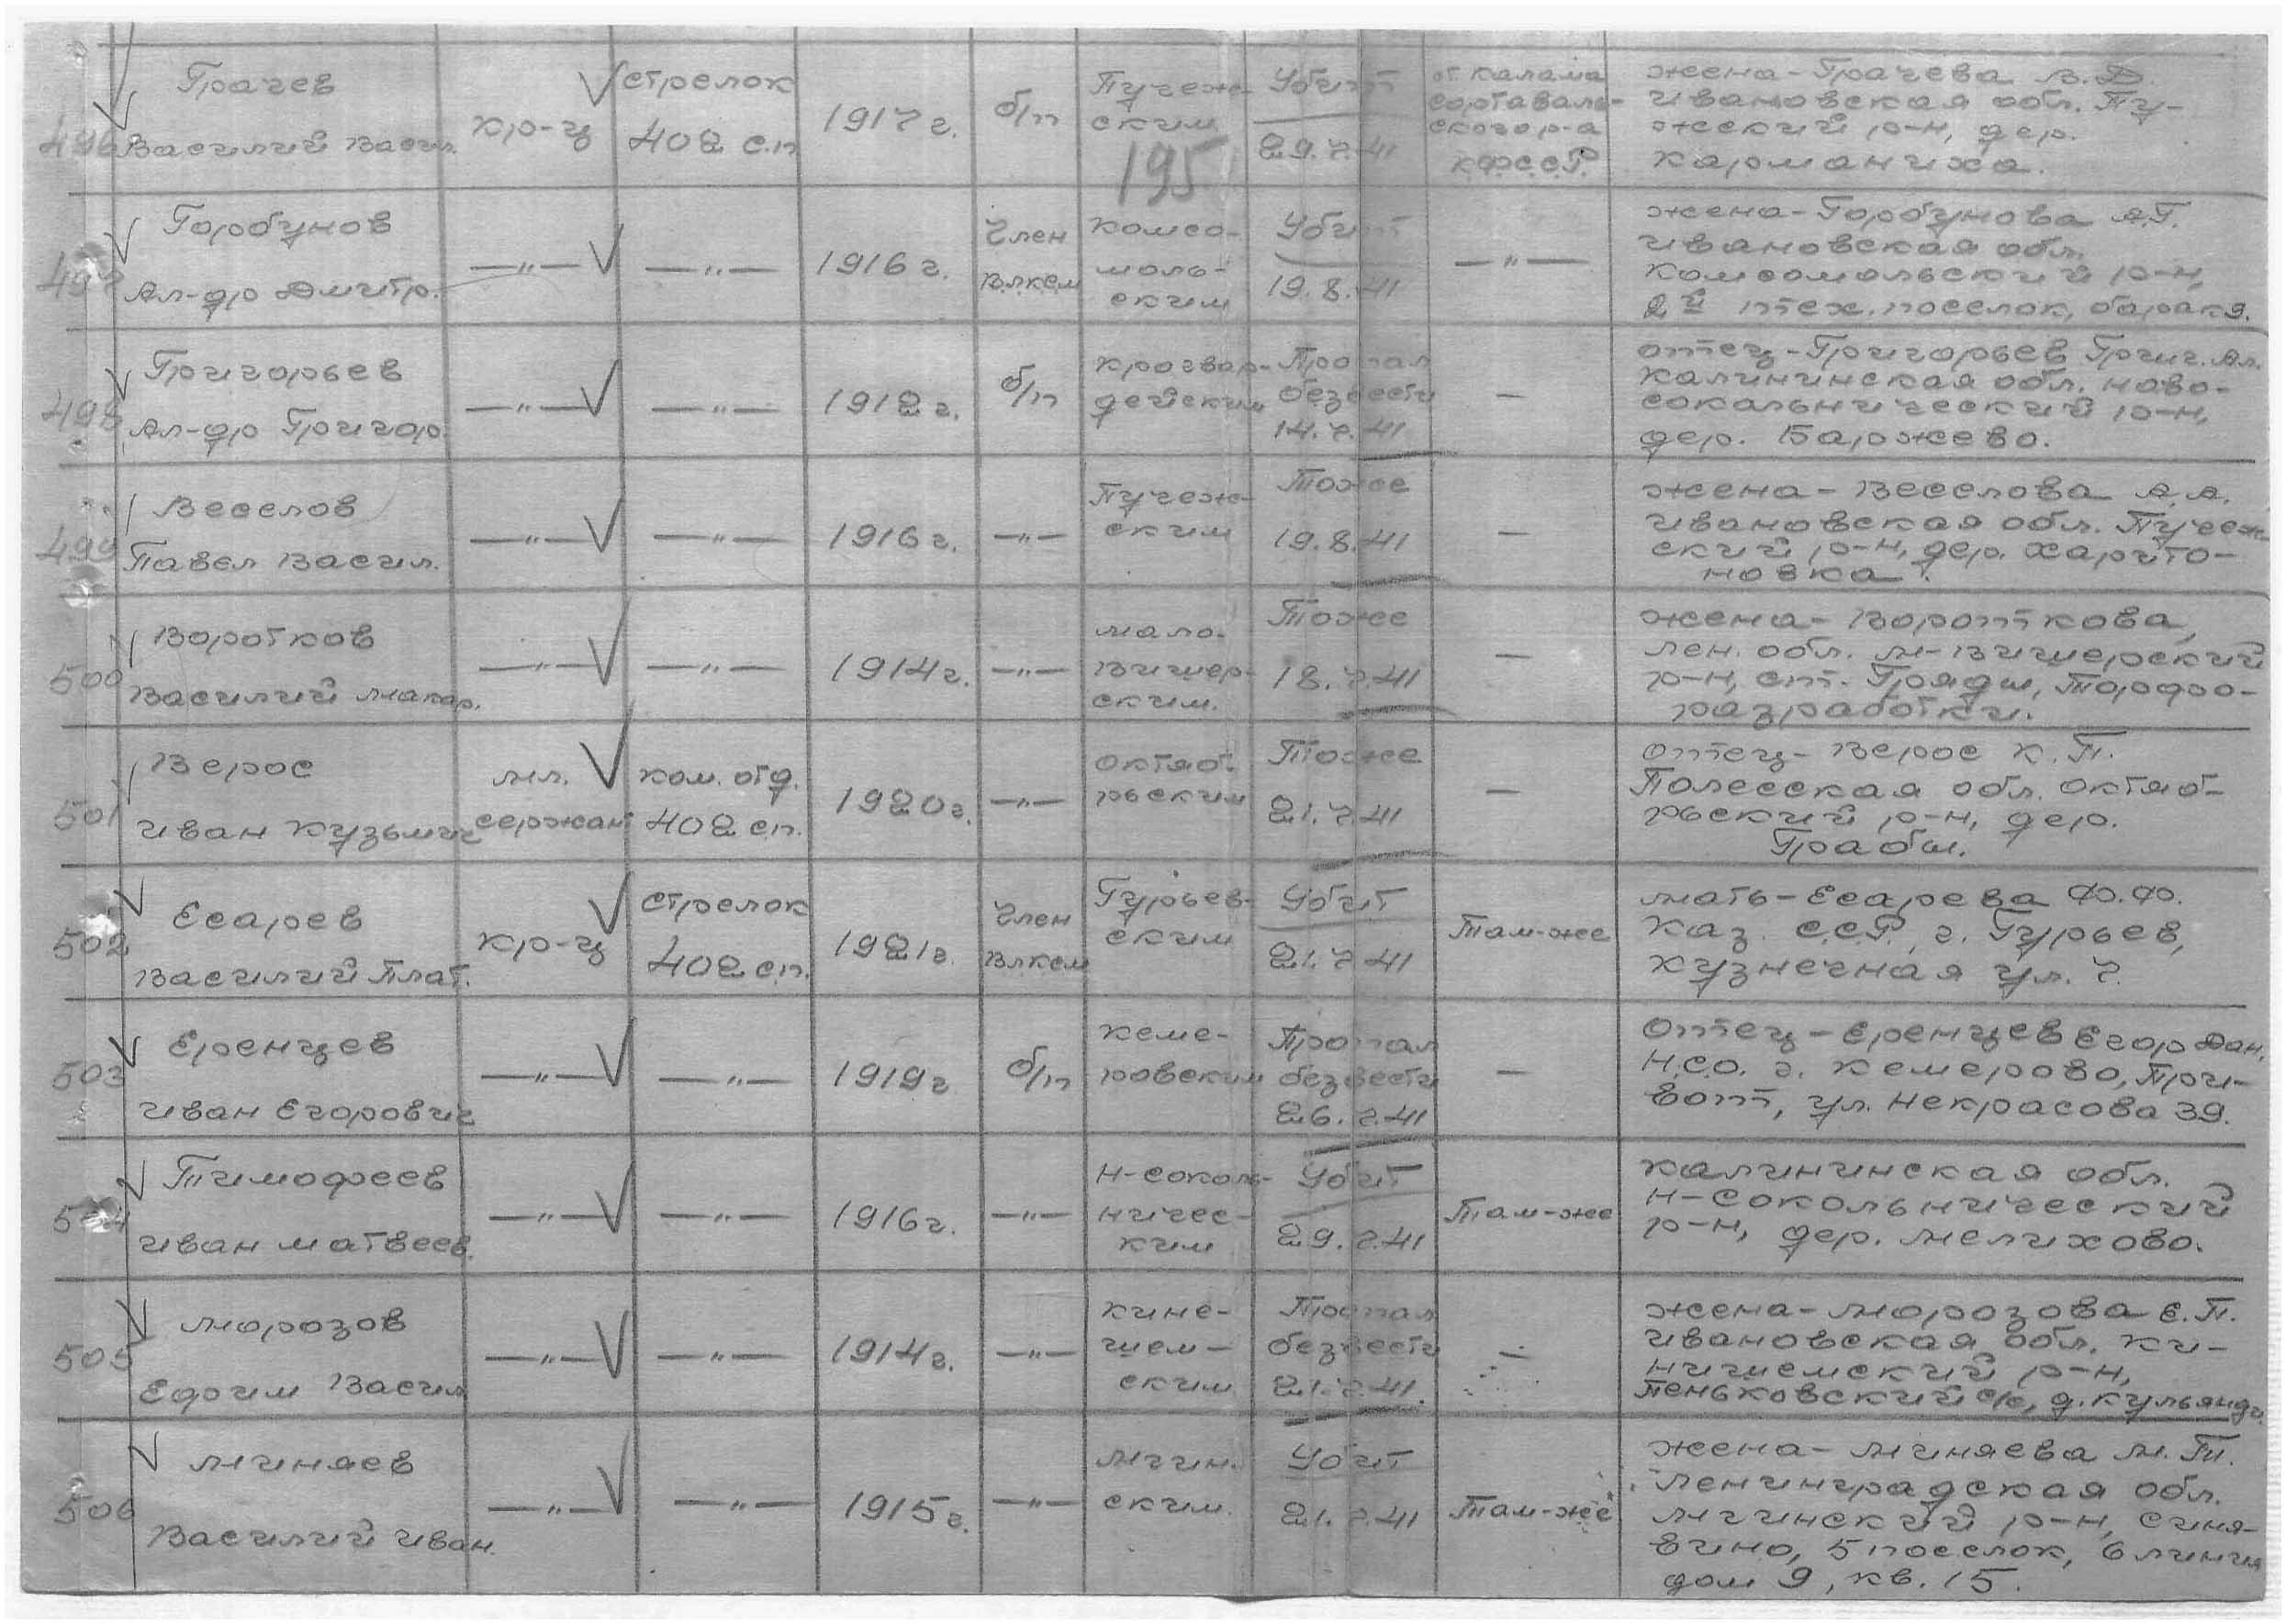 496
Грачев
Василий Васил.
кр-ц
стрелок
402 с.п
1917 г.
б/п
Пучеж-
ским
195
Убит
29.7.41
ст. Калама
Сортаваль-
ского р-а
КФССР.
жена - Грачева В.Д.
Ивановская обл. Пу-
жеский р-н, дер.
Карманиха.
497
Горбунов
Ал-др Дмитр.
—„—
—„—
1916 г.
Член
ВЛКСМ
Комсо-
моль-
ским
Убит
19.8.41
—„—
жена - Горбунова А.Г.
Ивановская обл.
Комсомольский р-н,
2й тех. поселок, барак 9.
498
Григорьев
Ал-др Григор.
—„—
—„—
1912 г.
б/п
Крогвар-
дейским
Пропал
безвести
14.7.41
—
отец - Григорьев Григ. Ал.
Калининская обл. Ново-
сокольнический р-н,
дер. Баржево.
499
Веселов
Павел Васил.
—„—
—„—
1916 г.
—„—
Пучеж-
ским
Тоже
19.8.41
—
жена - Веселова А.А.
Ивановская обл. Пучеж
ский р-н, дер. Харито-
новка.
500
Воротков
Василий Макар.
—„—
—„—
1914 г.
—„—
мало-
вишер-
ским.
Тоже
18.7.41
—
жена - Вороткова,
Лен. обл. М-Вишерский
р-н, ст. Гряды, Торфо-
разработки.
501
Верос
Иван Кузьмич
мл.
сержант
ком. отд.
402 с.п.
1920 г.
—„—
Октяб-
рьским
Тоже
21.7.41
—
Отец - Верос К.П.
Полесская обл. Октяб-
рьский р-н, дер.
Грабы.
502
Есарев
Василий Плат.
кр-ц
стрелок
402 сп.
1921 г.
Член
ВЛКСМ
Гурьев-
ским
Убит
21.7.41
Там-же
мать - Есарева Ф.Ф.
Каз. С.С.Р., г. Гурьев,
Кузнечная ул. 7.
503
Еренцев
Иван Егорович
—„—
—„—
1919 г
б/п
Кеме-
ровским
Пропал
безвести
26.7.41
—
Отец - Еренцев Егор Дан.
Н.С.О. г. Кемерово, При-
вот, ул. Некрасова 39.
504
Тимофеев
Иван Матвеев.
—„—
—„—
1916 г.
—„—
Н-Соколь-
ничес-
ким
Убит
29.7.41
Там-же
Калининская обл.
Н-Сокольнический
р-н, дер. Мелихово.
505
Морозов
Ефим Васил
—„—
—„—
1914 г.
—„—
Кине-
шем-
ским
Пропал
безвести
21.7.41.
—
жена - Морозова Е.П.
Ивановская обл. Ки-
нишемский р-н,
Пеньковский с/с, д. Кульянди.
506
Миняев
Василий Иван.
—„—
—„—
1915 г.
—„—
Мгин-
ским.
Убит
21.7.41
Там-же
жена - Миняева М.Т.
Ленинградская обл.
Мгинский р-н, Синя-
вино, 5 поселок, 6 линия
дом 9, кв. 15.